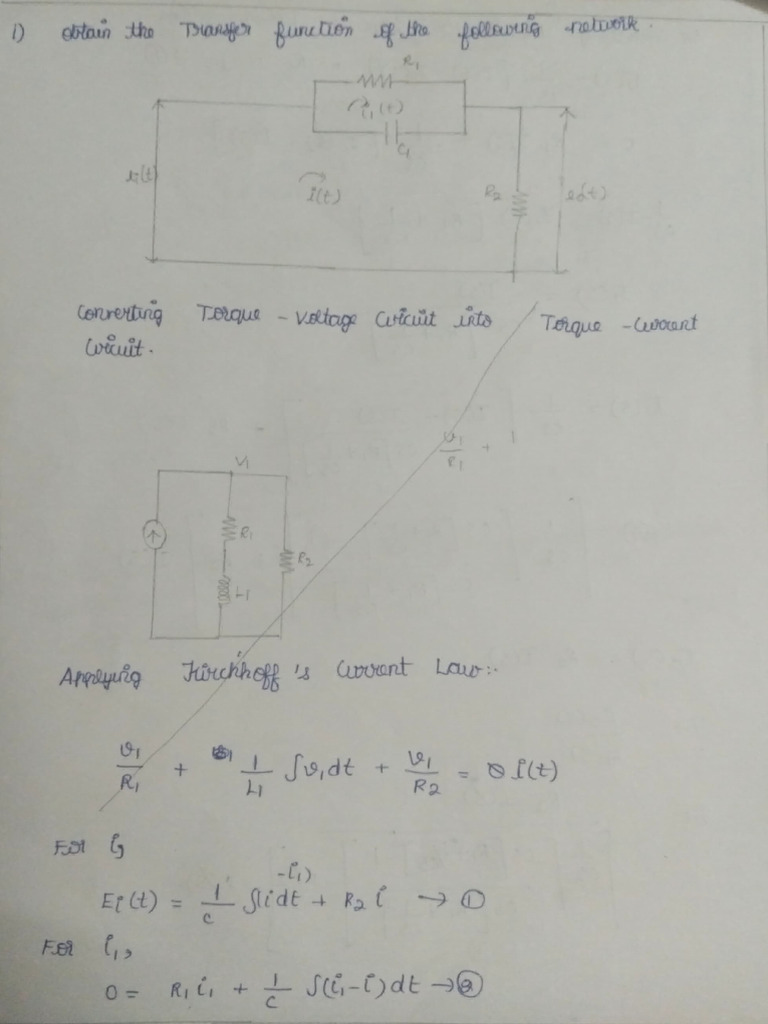 1) obtain the Transfer function of the following network.
R1
i1(t)
C1
ei(t)
I(t)
R2
eo(t)
Converting Torque - Voltage Circuit into Torque - Current
Circuit.
v1/R1 + 1
V1
R1
R2
L1
Applying Kirchhoff's Current Law:-
v1/R1 + 1/L1 ∫v1dt + v1/R2 = I(t)
For i,
Ei(t) = 1/c ∫(i-i1)dt + R2 i → ①
For i1,
0 = R1 i1 + 1/C ∫(i1-i)dt → ②